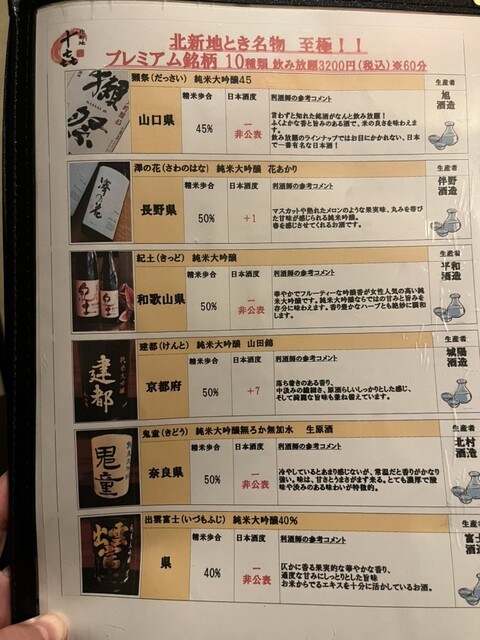 北新地とき名物 至極！！
プレミアム銘柄 10種類 飲み放題3200円(税込)※60分
獺祭(だっさい) 純米大吟醸45
生産者
旭
酒造
獺祭
山口県
精米歩合
45%
日本酒度
—
非公表
利酒師の参考コメント
言わずと知れた銘酒がなんと飲み放題！
ふくよかな香と旨みのある酒で、米の良さを味わえます。
飲み放題のラインナップではお目にかかれない、日本で一番有名な日本酒！
澤の花(さわのはな) 純米大吟醸 花あかり
生産者
伴野
酒造
澤の花
長野県
精米歩合
50%
日本酒度
+1
利酒師の参考コメント
マスカットや熟れたメロンのような果実味、丸みを帯びた甘味が感じられる純米吟醸。
春を感じさせてくれるお酒です。
紀土(きっど) 純米大吟醸
生産者
平和
酒造
紀土
和歌山県
精米歩合
50%
日本酒度
—
非公表
利酒師の参考コメント
華やかでフルーティーな吟醸香が女性人気の高い純米大吟醸です。純米大吟醸ならではの甘みと旨みを存分に味わえます。香り豊かなハーブとも絶妙に調和します。
建都(けんと) 純米大吟醸 山田錦
生産者
城陽
酒造
純米大吟醸
建都
京都府
精米歩合
50%
日本酒度
+7
利酒師の参考コメント
落ち着きのある香り、
中汲みの繊細さ、原酒らしいしっかりとした感じ、
そして綺麗な旨味も兼ね備えています。
鬼童(きどう) 純米大吟醸無ろか無加水 生原酒
生産者
北村
酒造
鬼童
奈良県
精米歩合
50%
日本酒度
—
非公表
利酒師の参考コメント
冷やしているとあまり感じないが、常温だと香りがかなり強い。味は、甘さとうまさがます来る。とても濃厚で酸味や渋みのある味わいが特徴的。
出雲富士(いづもふじ) 純米大吟醸40%
生産者
富士
酒造
出雲富士
県
精米歩合
40%
日本酒度
—
非公表
利酒師の参考コメント
仄かに香る果実的な華やかな香り、
適度な甘みにしっとりとした旨味
お米からでるエキスを十分に活かしているお酒。